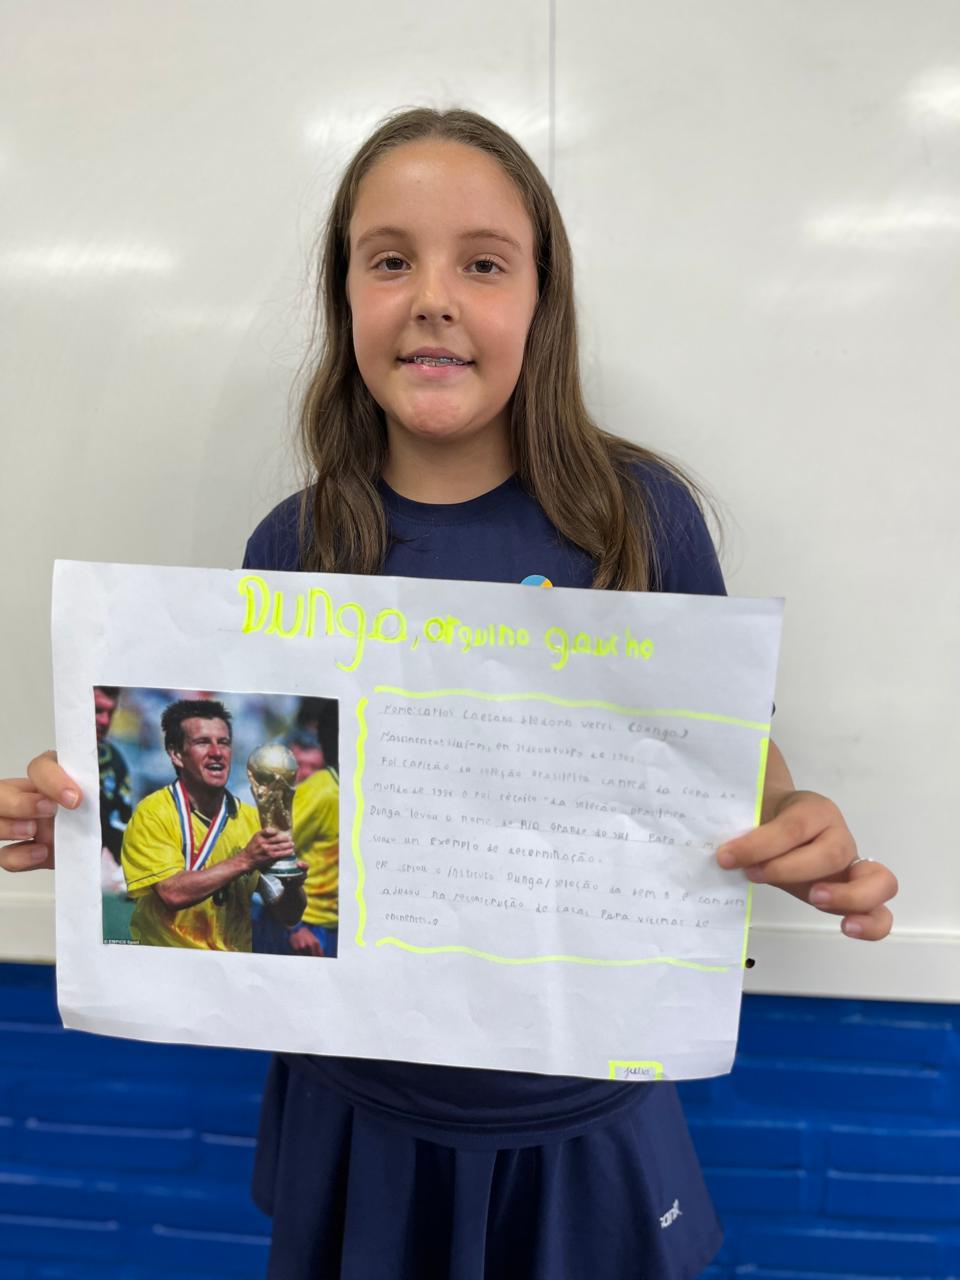 Dunga, orguino gaucho
Nome: carlos Caetano Bledorn Verri (Dunga)
Nascimento: Ijuí em de outubro de 1963
Foi capitão da seleção brasileira campeã da copa do
mundo de 1994 e foi técnico da seleção brasileira.
Dunga levou o nome do Rio Grande do sul para o
como um exemplo de determinação.
ele criou o instituto Dunga/seleção do bem 8 e também
ajudou na reconstrução de casas para vítimas de
enchentes.
julia
© EMPICS Sport